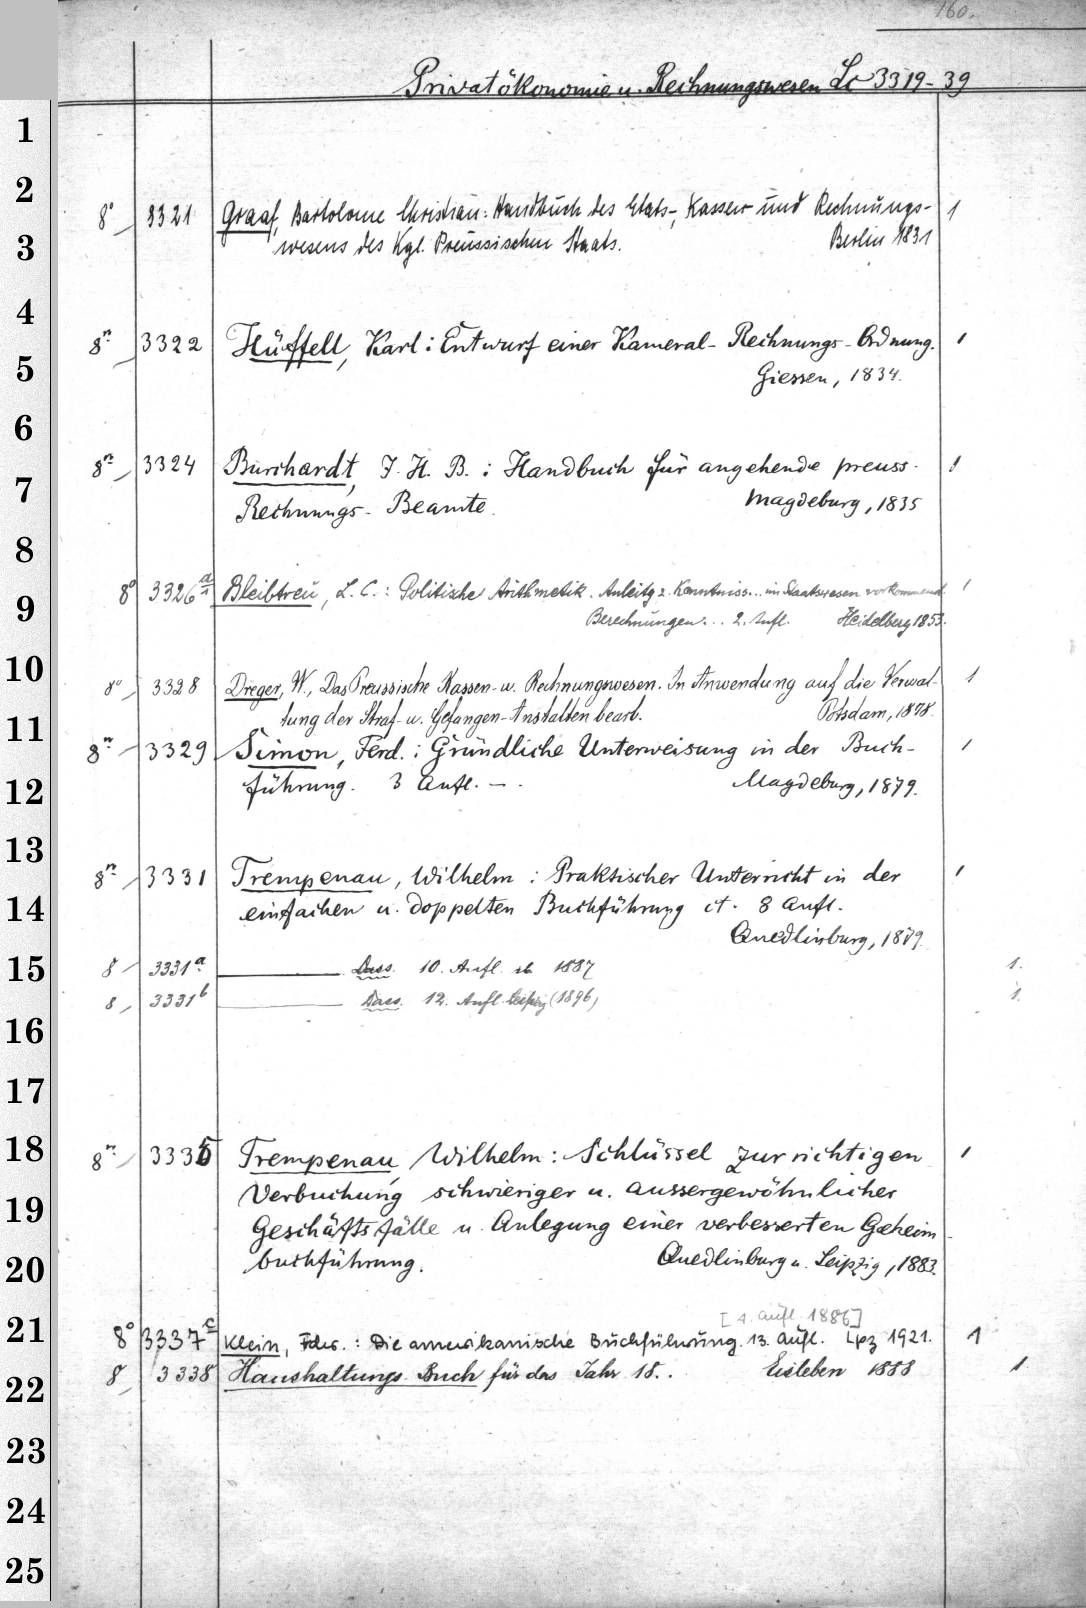 160.
Privatökonomie u. Rechnungswesen Lc 3319-39
1
2
8° 3321 Graaf, Bartolome Christian: Handbuch des Etats-, Kassen- und Rechnungs- 1
3 wesens des Kgl. Preussischen Staats. Berlin 1831
4
8° 3322 Hüffell, Karl: Entwurf einer Kameral-Rechnungs-Ordnung. 1
5 Giessen, 1834.
6
8° 3324 Burchardt, F. H. B.: Handbuch für angehende preuss. 1
7 Rechnungs-Beamte. Magdeburg, 1835
8
8° 3326 Bleibtreu, L. C.: Politische Arithmetik. Anleitg z. Kenntniss... im Staatswesen vorkommend. 1
9 Berechnungen... 2. Aufl. Heidelberg 1853.
10
8° 3328 Dreger, W., Das Preussische Kassen- u. Rechnungswesen. In Anwendung auf die Verwal- 1
11 tung der Straf- u. Gefangen-Anstalten bearb. Potsdam, 1878.
8° 3329 Simon, Ferd.: Gründliche Unterweisung in der Buch- 1
12 führung. 3 Aufl. — . Magdeburg, 1879.
13
8° 3331 Trempenau, Wilhelm: Praktischer Unterricht in der 1
14 einfachen u. doppelten Buchführung ct. 8 Aufl.
Quedlinburg, 1879.
15 8 3331a Dass. 10. Aufl. 1887 1.
8, 3331b Dass. 12. Aufl. Leipzig (1896) 1.
16
17
18 8° 3335 Trempenau, Wilhelm: Schlüssel zur richtigen 1
Verbuchung schwieriger u. aussergewöhnlicher
19 Geschäftsfälle u. Anlegung einer verbesserten Geheim-
20 buchführung. Quedlinburg u. Leipzig, 1883.
[4. Aufl. 1886]
21 8° 3337c Klein, Fdr.: Die amerikanische Buchführung. 13. Aufl. Lpz 1921. 1
22 8, 3338 Haushaltungs-Buch für das Jahr 18.. Eisleben 1888 1.
23
24
25